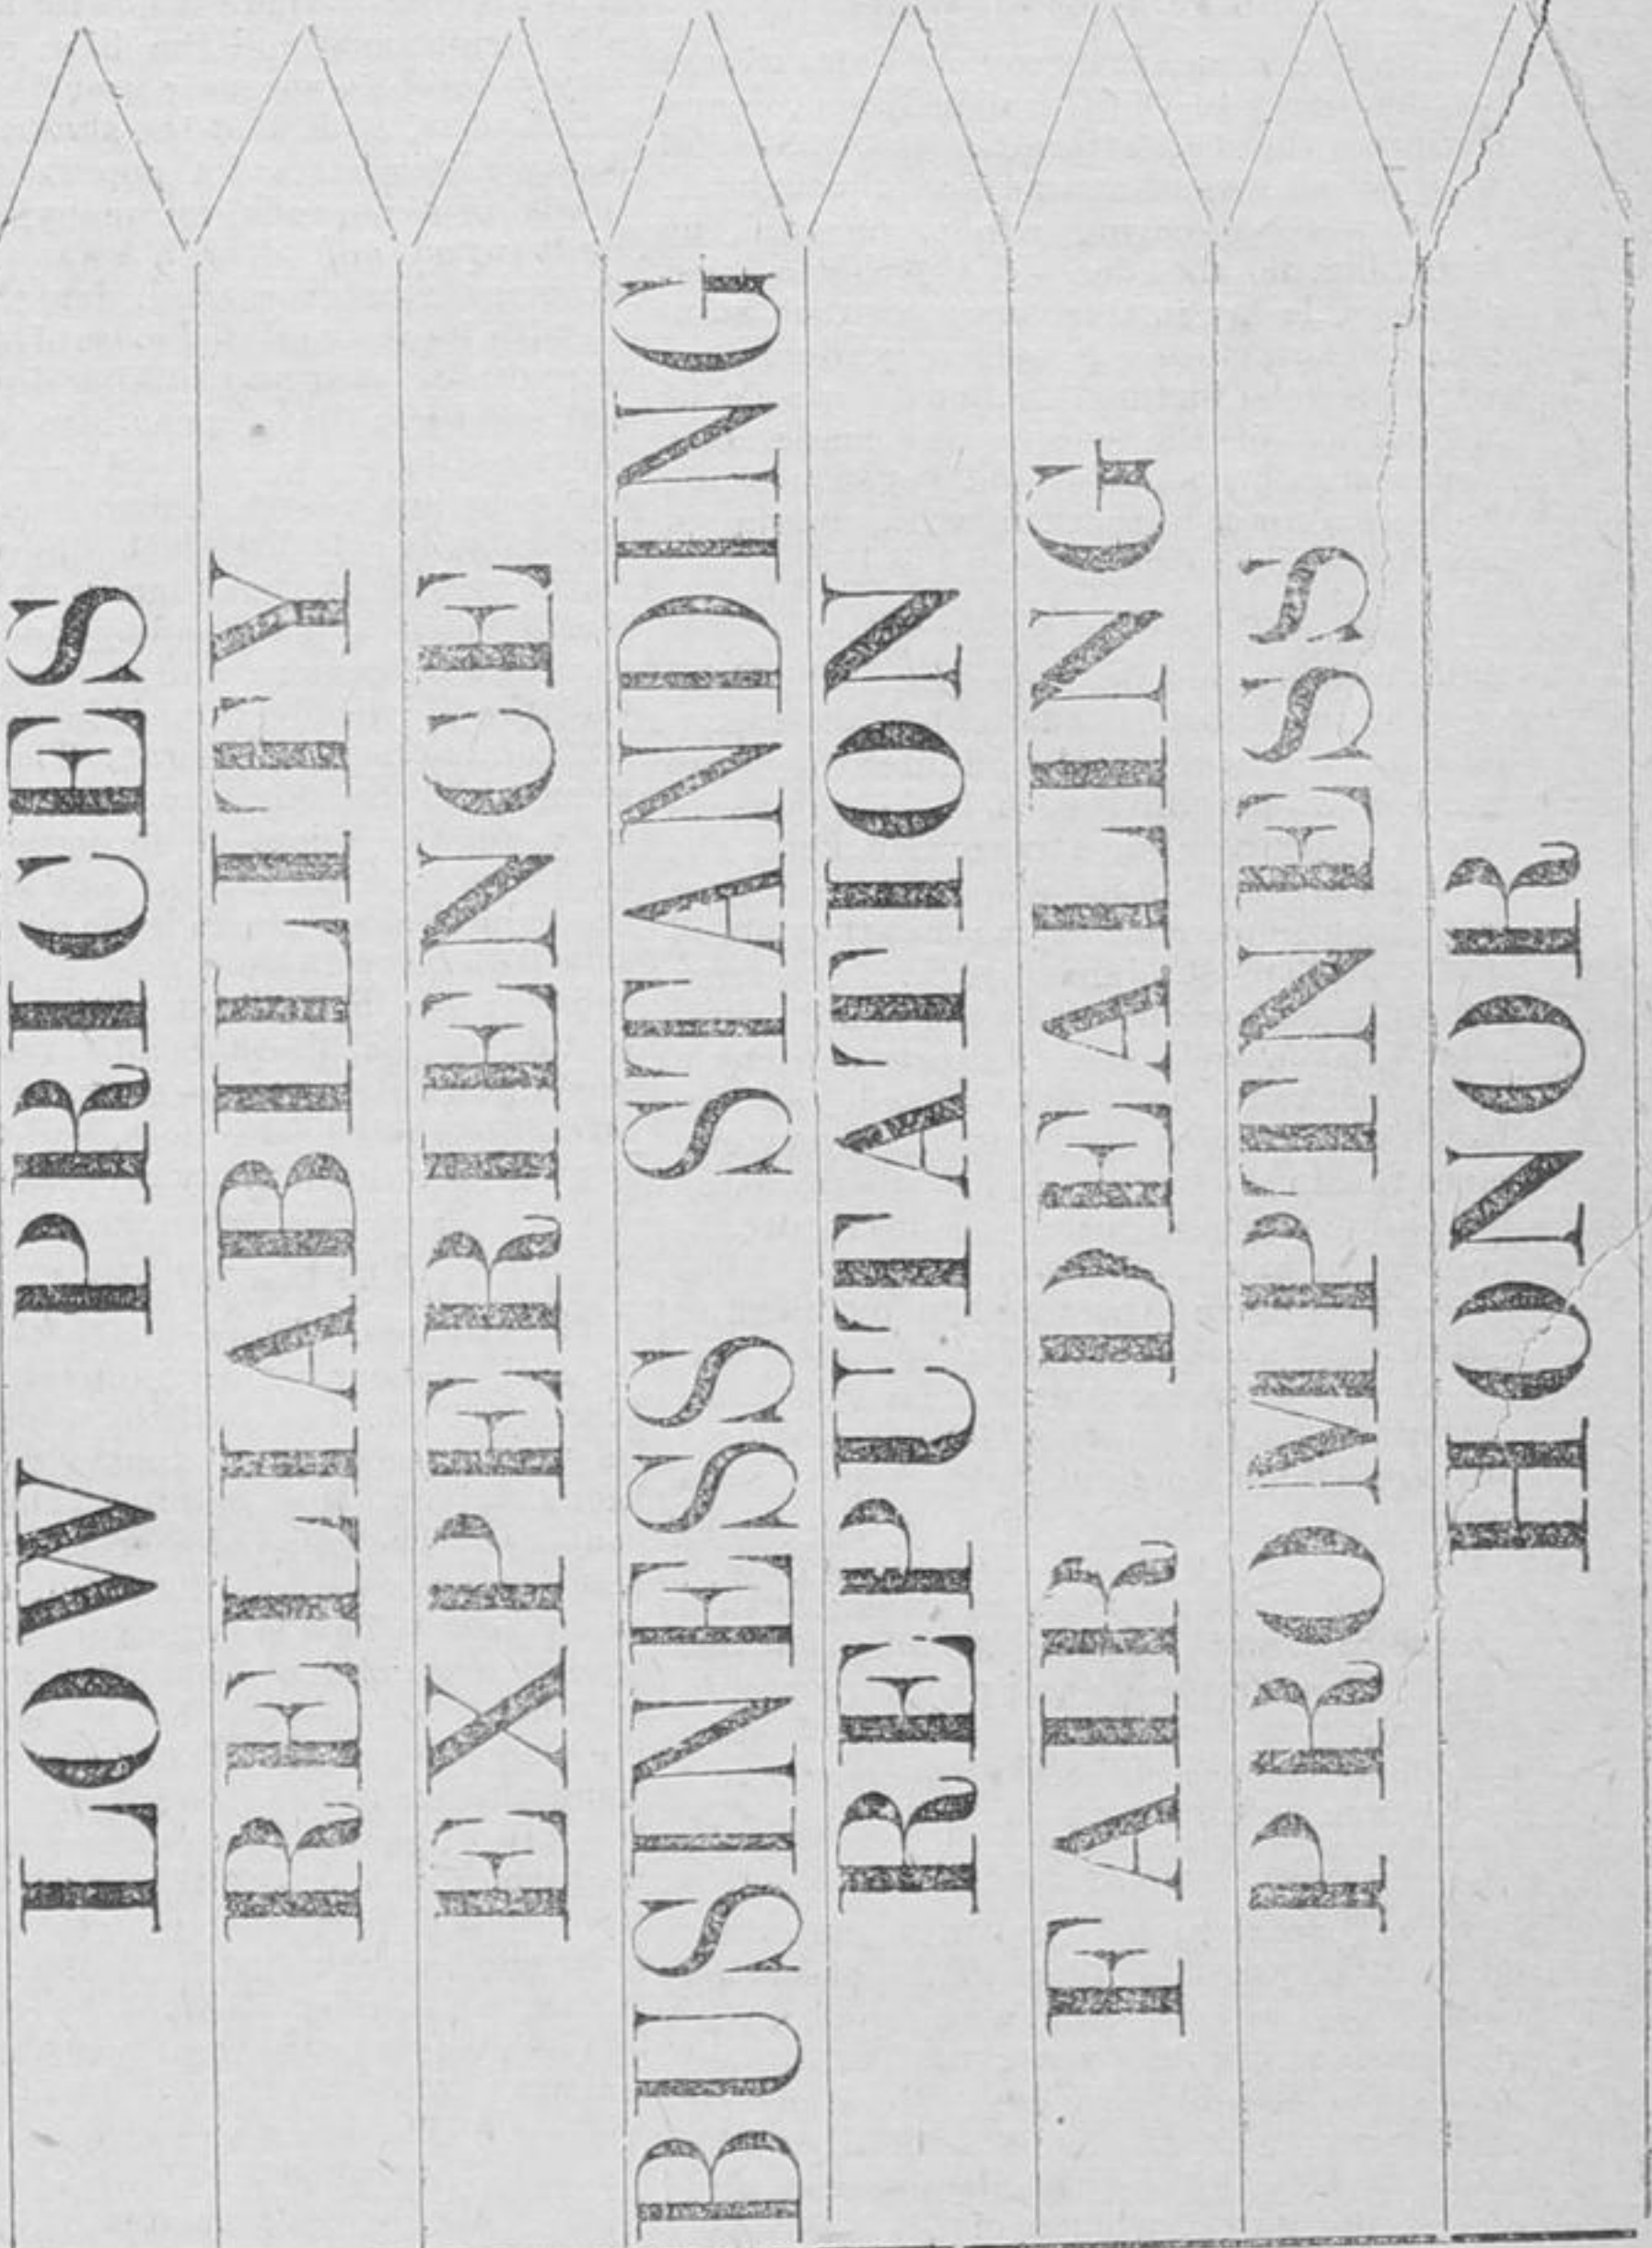 LOW PRICES
RELIABILITY
EXPERIENCE
BUSINESS STANDING
REPUTATION
FAIR DEALING
PROMPTNESS
HONOR